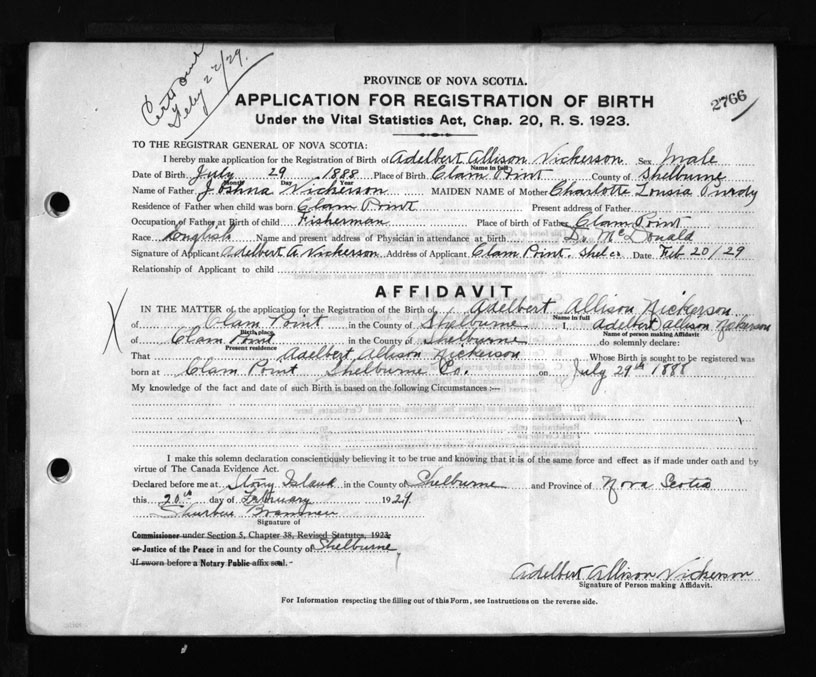 Feby 22/29.
PROVINCE OF NOVA SCOTIA.
2766
APPLICATION FOR REGISTRATION OF BIRTH
Under the Vital Statistics Act, Chap. 20, R. S. 1923.
TO THE REGISTRAR GENERAL OF NOVA SCOTIA:
I hereby make application for the Registration of Birth of Adelbert Allison Nickerson Sex Male
Name in full
Date of Birth July 29 1888 Place of Birth Clam Point County of Shelburne
Month Day Year
Name of Father Joshua Nickerson MAIDEN NAME of Mother Charlotte Lousia Purdy
Residence of Father when child was born Clam Point Present address of Father
Occupation of Father at Birth of child Fisherman Place of birth of Father Clam Point
Race English Name and present address of Physician in attendance at birth Dr McDonald
Signature of Applicant Adelbert A Nickerson Address of Applicant Clam Point. Shel co. Date Feb 20/29
Relationship of Applicant to child
AFFIDAVIT
IN THE MATTER of the application for the Registration of the Birth of Adelbert Allison Nickerson
Name in full
of Clam Point in the County of Shelburne I, Adelbert allison Nickerson
Birth place Name of person making Affidavit
of Clam Point in the County of Shelburne do solemnly declare:
Present residence
That Adelbert Allison Nickerson Whose Birth is sought to be registered was
born at Clam Point Shelburne Co. on July 29th 1888
My knowledge of the fact and date of such Birth is based on the following Circumstances :—
I make this solemn declaration conscientiously believing it to be true and knowing that it is of the same force and effect as if made under oath and by
virtue of The Canada Evidence Act.
Declared before me at Stony Island in the County of Shelburne and Province of Nova Scotia
this 20th day of February 1929
Signature of
Commissioner under Section 5, Chapter 38, Revised Statutes, 1923,
or Justice of the Peace in and for the County of Shelburne
If sworn before a Notary Public affix seal.
Adelbert Allison Nickerson
Signature of Person making Affidavit.
For Information respecting the filling out of this Form, see Instructions on the reverse side.